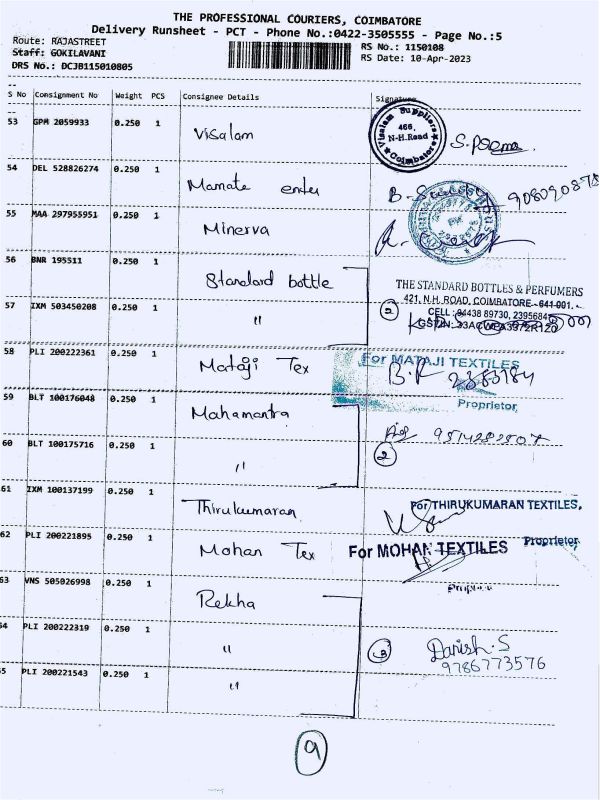 THE PROFESSIONAL COURIERS, COIMBATORE
Delivery Runsheet - PCT - Phone No.:0422-3505555 - Page No.:5
Route: RAJASTREET
RS No.: 1150108
Staff: GOKILAVANI
RS Date: 10-Apr-2023
DRS No.: DCJB115010805
S No Consignment No Weight PCS Consignee Details Signature
53 GPM 2059933 0.250 1 Visalam
Visalam Suppliers
466,
N-H.Road
Coimbatore
54 DEL 528826274 0.250 1 Mamate enter
55 MAA 297955951 0.250 1 Minerva
56 BNR 195511 0.250 1 Standard bottle
THE STANDARD BOTTLES & PERFUMERS
421, N.H. ROAD, COIMBATORE - 641 001.
57 IXM 503450208 0.250 1 "
2
CELL : 94438 89730, 2395684
58 PLI 200222361 0.250 1 Mataji Tex
For MATAJI TEXTILES
Proprietor
59 BLT 100176048 0.250 1 Mahamantra
60 BLT 100175716 0.250 1 "
2
61 IXM 100137199 0.250 1 Thirukumaran
For THIRUKUMARAN TEXTILES,
Proprietor
62 PLI 200221895 0.250 1 Mohan Tex
For MOHAN TEXTILES
63 VNS 505026998 0.250 1 Rekha
64 PLI 200222319 0.250 1 "
3 Danish.S
9786773576
65 PLI 200221543 0.250 1 "
9